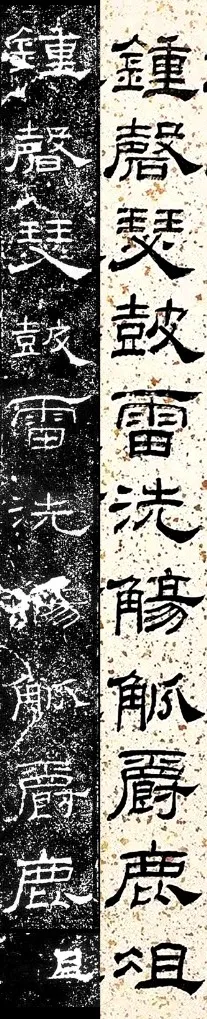 鍾磬瑟皷雷洗觴觚爵鹿俎
鍾磬瑟皷雷洗觴觚爵鹿